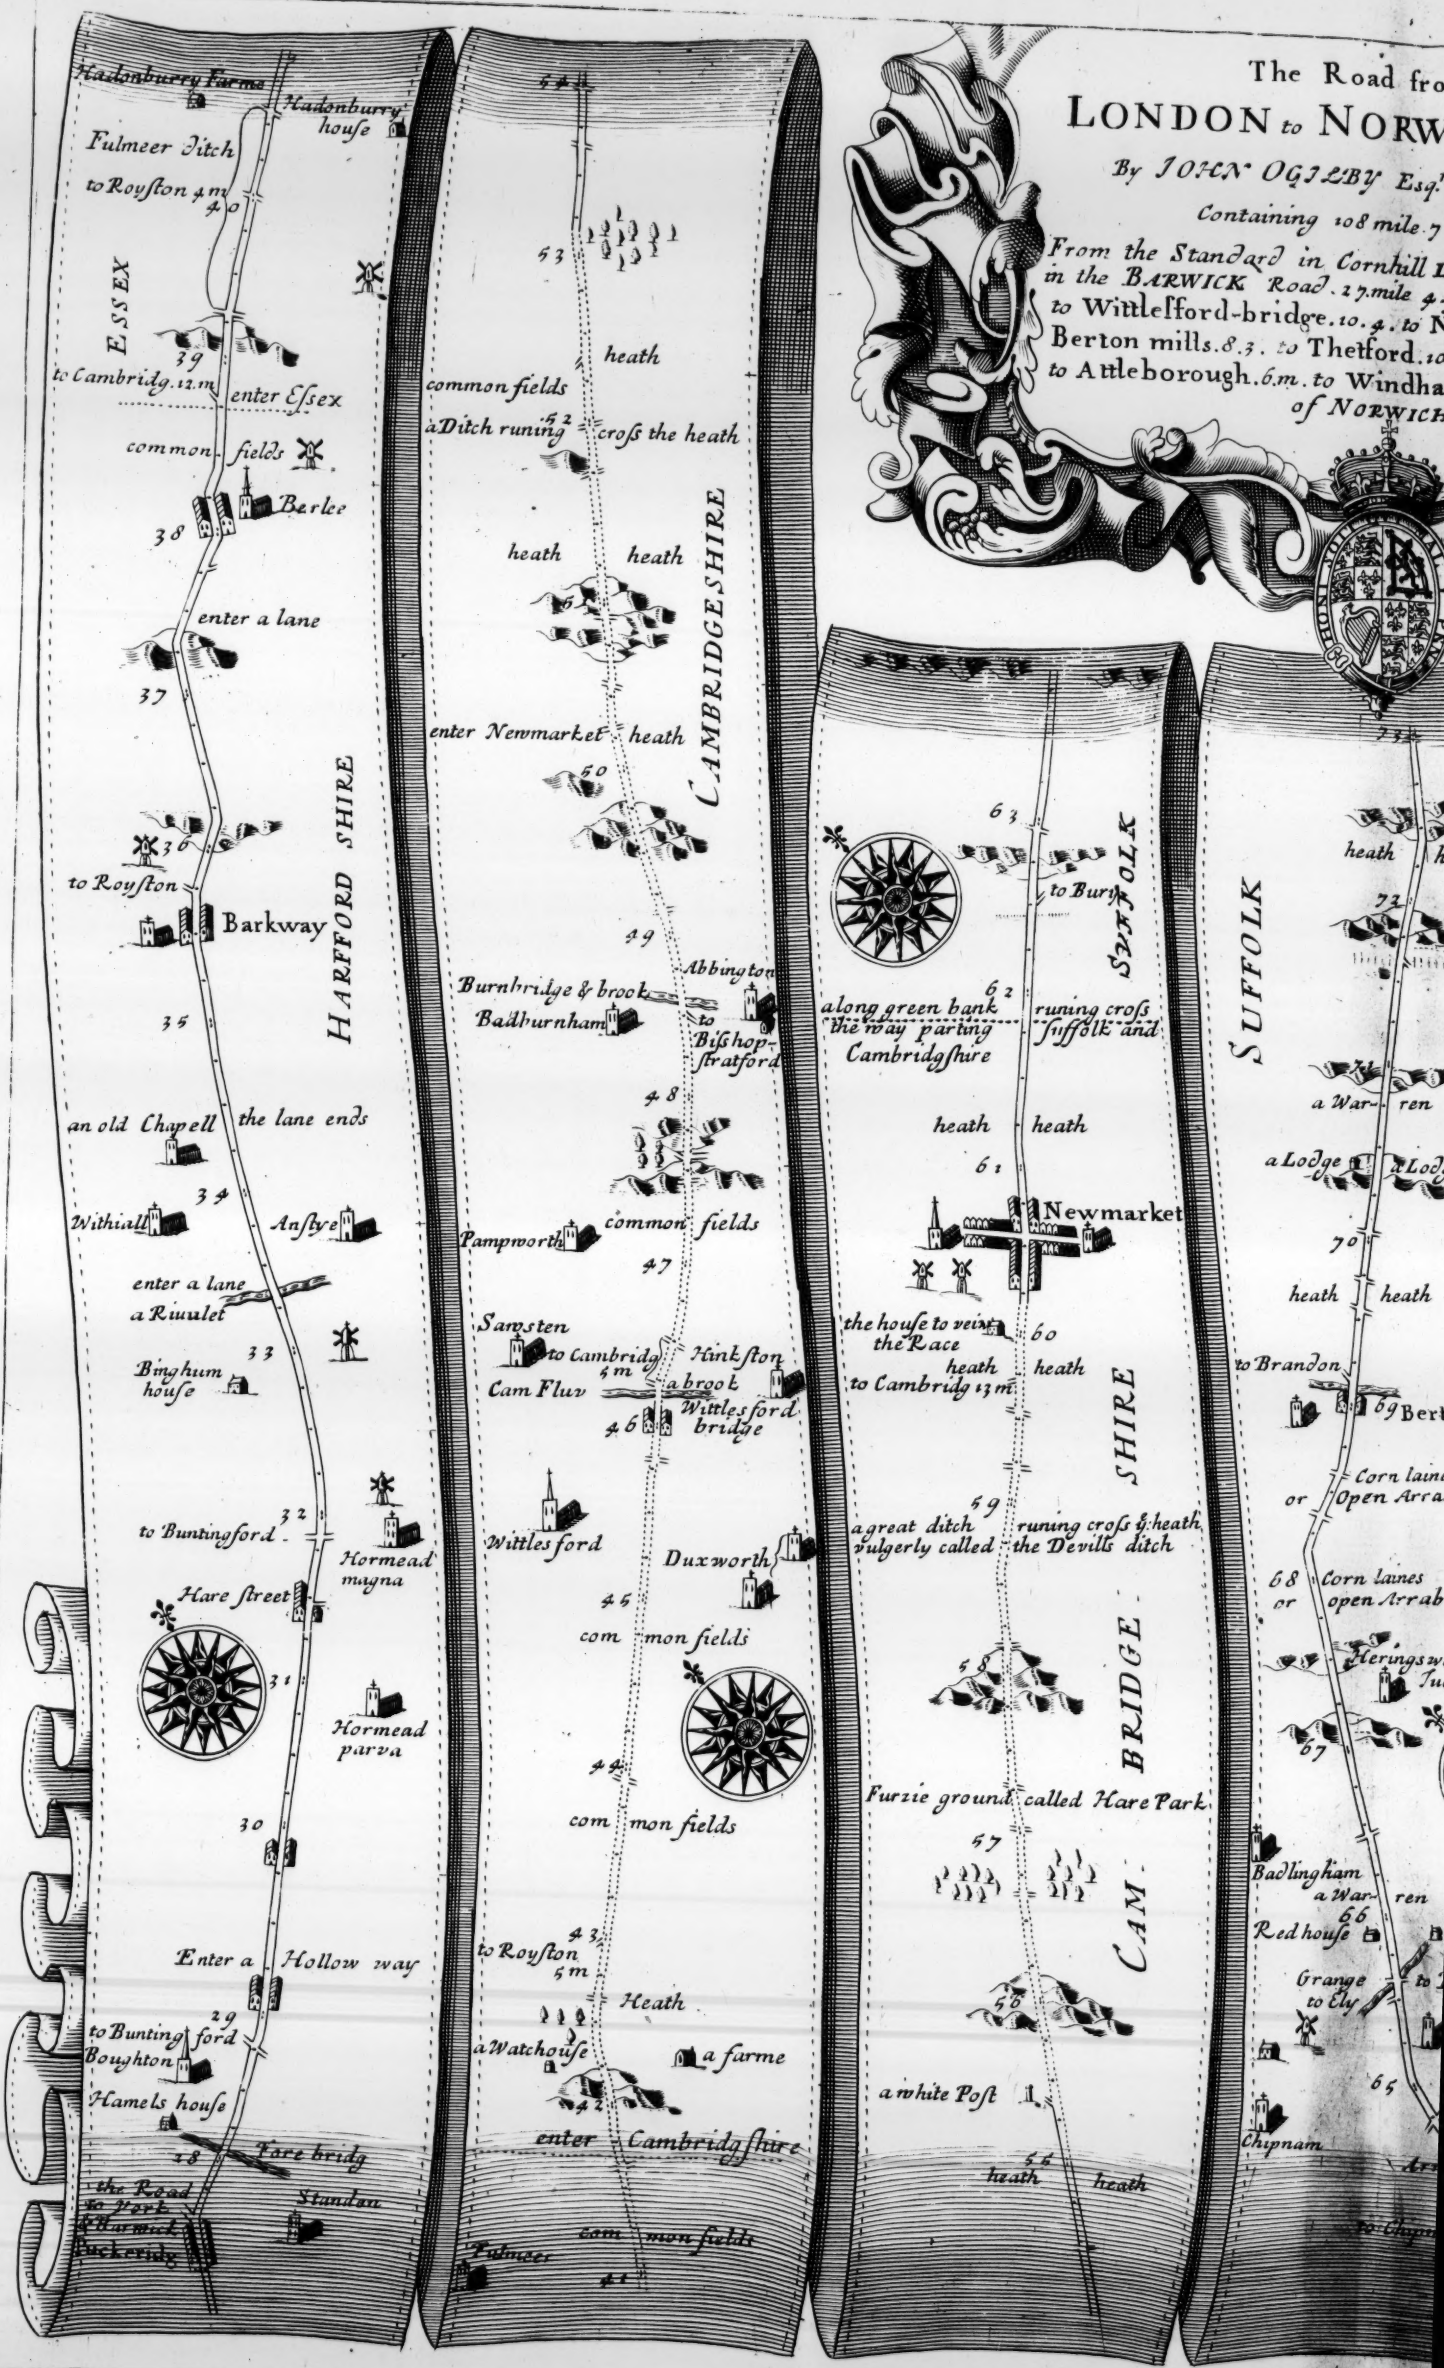 The Road fro
LONDON to NORW
By JOHN OGILBY Esqr.
Containing 108 mile. 7
From the Standard in Cornhill L
in the BARWICK Road. 27. mile 4.
to Wittlesford-bridge. 10. 4. to N
Berton mills. 8. 3. to Thetford. 10
to Attleborough. 6. m. to Windha
of NORWICH
Hadonburry Farme
Hadonburry
house
Fulmeer ditch
to Royston 4 m
40
ESSEX
39
to Cambridg. 12. m
enter Essex
common fields
Berlee
38
enter a lane
37
HARFFORD SHIRE
36
to Royston
Barkway
35
an old Chapell
the lane ends
34
Withiall
Anstye
enter a lane
a Riuulet
33
Binghum
house
32
to Buntingford
Hormead
magna
Hare street
31
Hormead
parva
30
Enter a Hollow way
29
to Buntingford
Boughton
Hamels house
28
Fore bridg
the Road
to York
& Barwick
Puckeridg
Standon
54
53
heath
common fields
52
a Ditch runing cross the heath
heath heath
51
CAMBRIDGESHIRE
enter Newmarket heath
50
49
Abbington
Burnbridge & brook
Badburnham
to
Bisshop-
stratford
48
common fields
Pampworth
47
Sawsten
to Cambridg
5 m
Hinkston
Cam Fluv
a brook
46
Wittlesford
bridge
Wittlesford
Duxworth
45
com mon fields
44
com mon fields
43
to Royston
5 m
Heath
a Watchouse
a farme
42
enter Cambridgshire
com mon fields
Fulmeer
41
63
SUFFOLK
to Bury
62
along green bank runing cross
the way parting suffolk and
Cambridgshire
heath heath
61
Newmarket
the house to vein
the Race
60
heath heath
to Cambridg 13 m
CAMBRIDGE SHIRE
59
a great ditch runing cross ye heath
vulgerly called the Devills ditch
58
Furzie ground called Hare Park
57
56
a white Post
55
heath heath
HONI SOIT
73
heath h
72
SUFFOLK
71
a War- ren
a Lodge a Lod
70
heath heath
to Brandon
69 Bert
Corn laine
or Open Arra
68 Corn laines
or open Arrab
Heringsw
67
Badlingham
a War- ren
66
Red house
Grange
to Ely
65
Chipnam
to Chipn